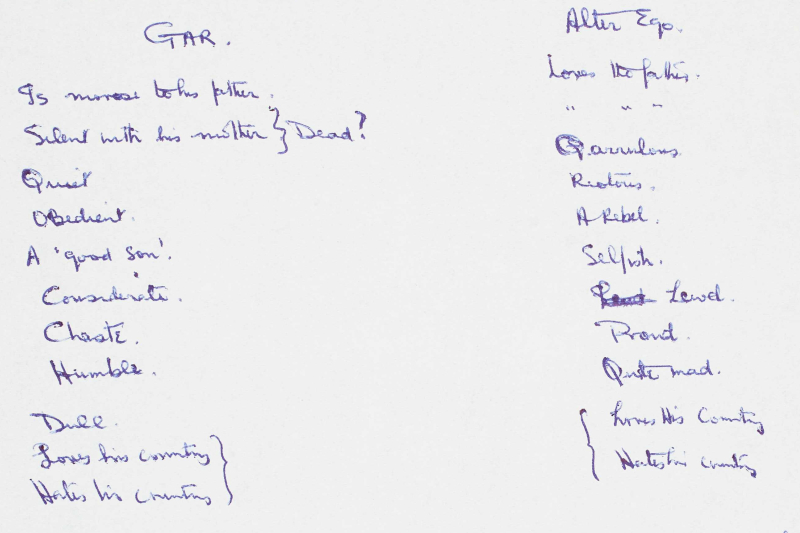 GAR.
Is morose to his father.
Silent with his mother } Dead?
Quiet
OBedient.
A 'good son'.
Considerate.
Chaste.
Humble.
Dull.
Loves his country
Hates his country
Alter Ego.
Loves the father.
" " "
Garrulous.
Riotous.
A Rebel.
Selfish.
Lewd.
Proud.
Quite mad.
Loves His Country
Hates his country